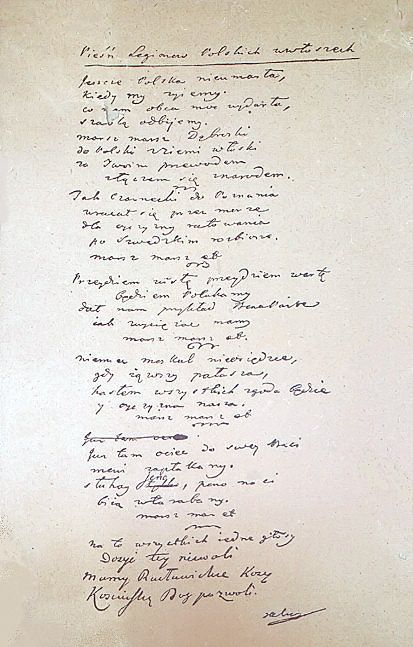 Pieśń Legionow Polskich wewłoszech
Jeszcze Polska nieumarła,
kiedy my żyiemy.
co nam obca moc wydarła,
szablą odbijemy.
marsz marsz Dąbroski
do Polski z ziemi włoski
za Twoim przewodem
złączem się znarodem.
Jak Czarnecki do Poznania
wracał się przez morze
dla oyczyzny ratowania
po Szwedzkim rozbiorze.
marsz marsz etc
Przeydziem wisłę przeydziem wartę
będziem Polakamy
dał nam przykład Bonaparte
jak zwyciężac mamy
marsz marsz etc.
niemiec moskal nieosiędzie,
gdy iąwszy pałasza,
hasłem wszystkich zgoda będzie
y oyczyzna nasza.
marsz marsz etc
Już tam ociec
Już tam ociec do swey Basi
mówi zapłakany.
słuchay , pono nasi
biią w tarabany.
marsz mar etc
na to wszystkich iedne głosy
Dosyć tey niewoli
Mamy Racławickie Kosy
Kosciuszkę Bog pozwoli.